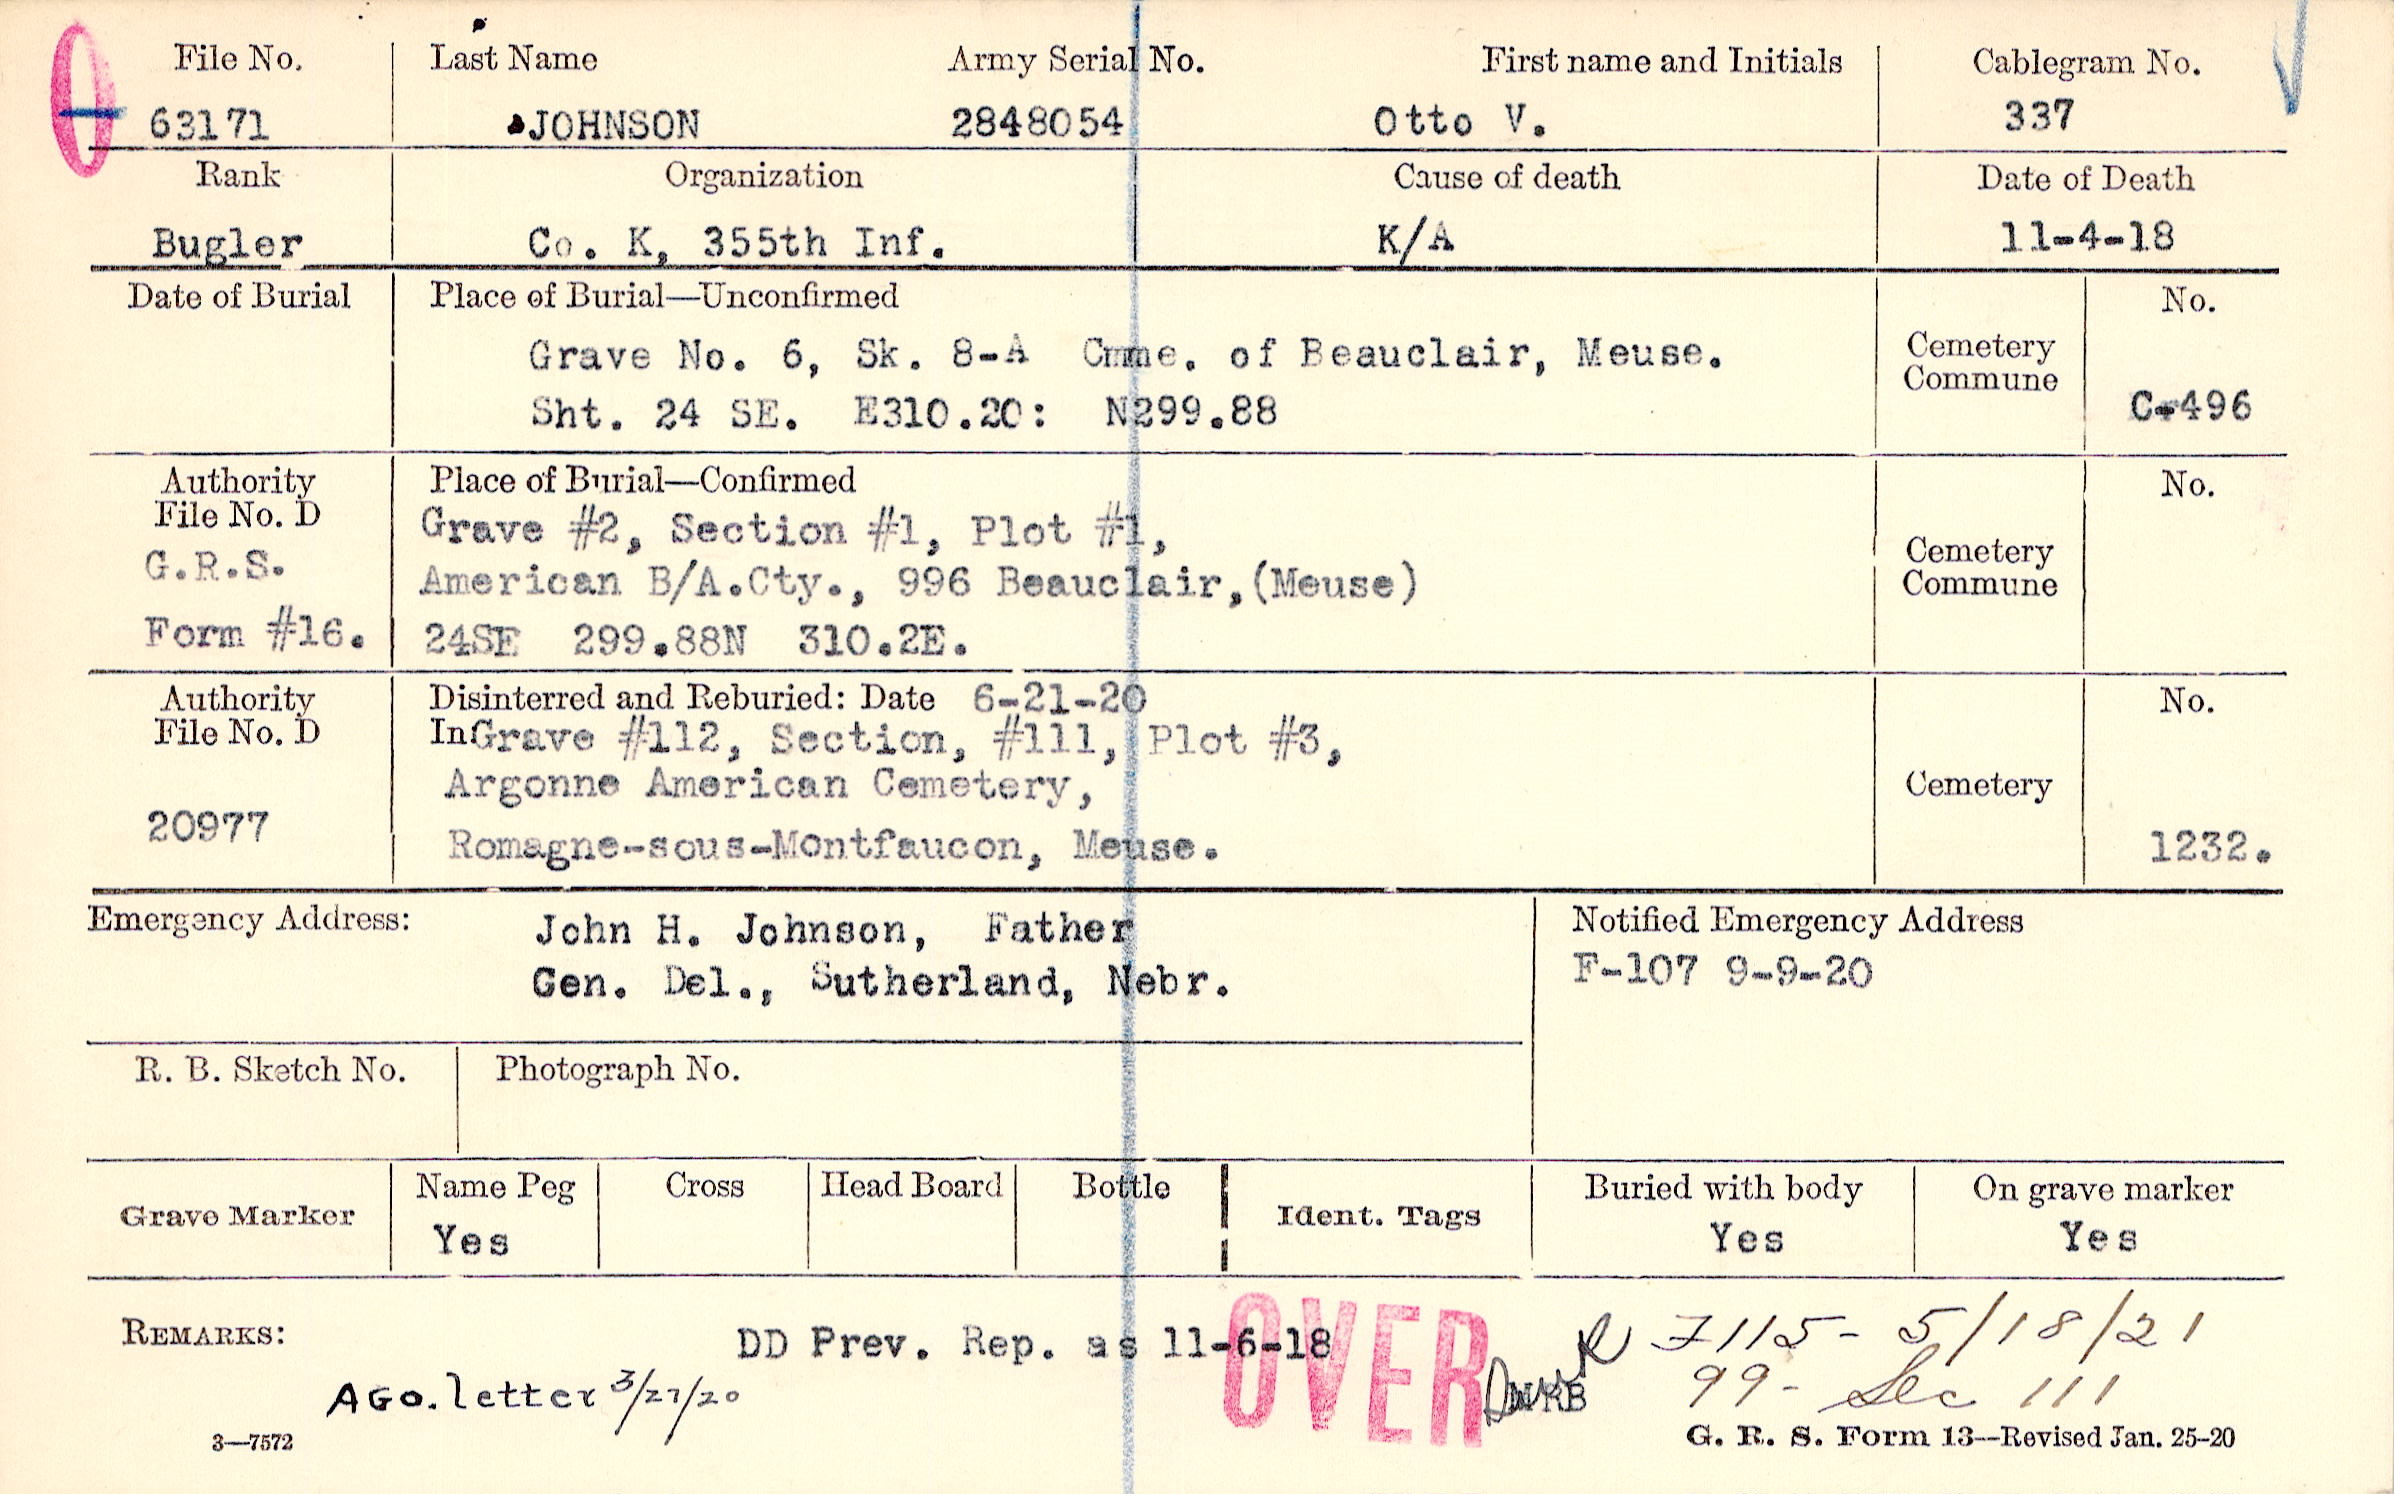 File No. Last Name Army Serial No. First name and Initials Cablegram No.
63171 JOHNSON 2848054 Otto V. 337
Rank Organization Cause of death Date of Death
Bugler Co. K, 355th Inf. K/A 11-4-18
Date of Burial Place of Burial—Unconfirmed No.
Grave No. 6, Sk. 8-A Cmme. of Beauclair, Meuse. Cemetery
Commune
Sht. 24 SE. E310.20: N299.88 C-496
Authority Place of Burial—Confirmed No.
File No. D Grave #2, Section #1, Plot #1,
G.R.S. American B/A.Cty., 996 Beauclair,(Meuse) Cemetery
Commune
Form #16. 24SE 299.88N 310.2E.
Authority Disinterred and Reburied: Date 6-21-20 No.
File No. D InGrave #112, Section, #111, Plot #3,
Argonne American Cemetery, Cemetery
20977 Romagne-sous-Montfaucon, Meuse. 1232.
Emergency Address: John H. Johnson, Father Notified Emergency Address
Gen. Del., Sutherland, Nebr. F-107 9-9-20
R. B. Sketch No. Photograph No.
Name Peg Cross Head Board Bottle Buried with body On grave marker
Grave Marker Ident. Tags
Yes Yes Yes
REMARKS: DD Prev. Rep. as 11-6-18 OVER 7115- 5/18/21
AGO. letter 3/27/20 99- Sec 111
3—7572 G. R. S. Form 13—Revised Jan. 25-20